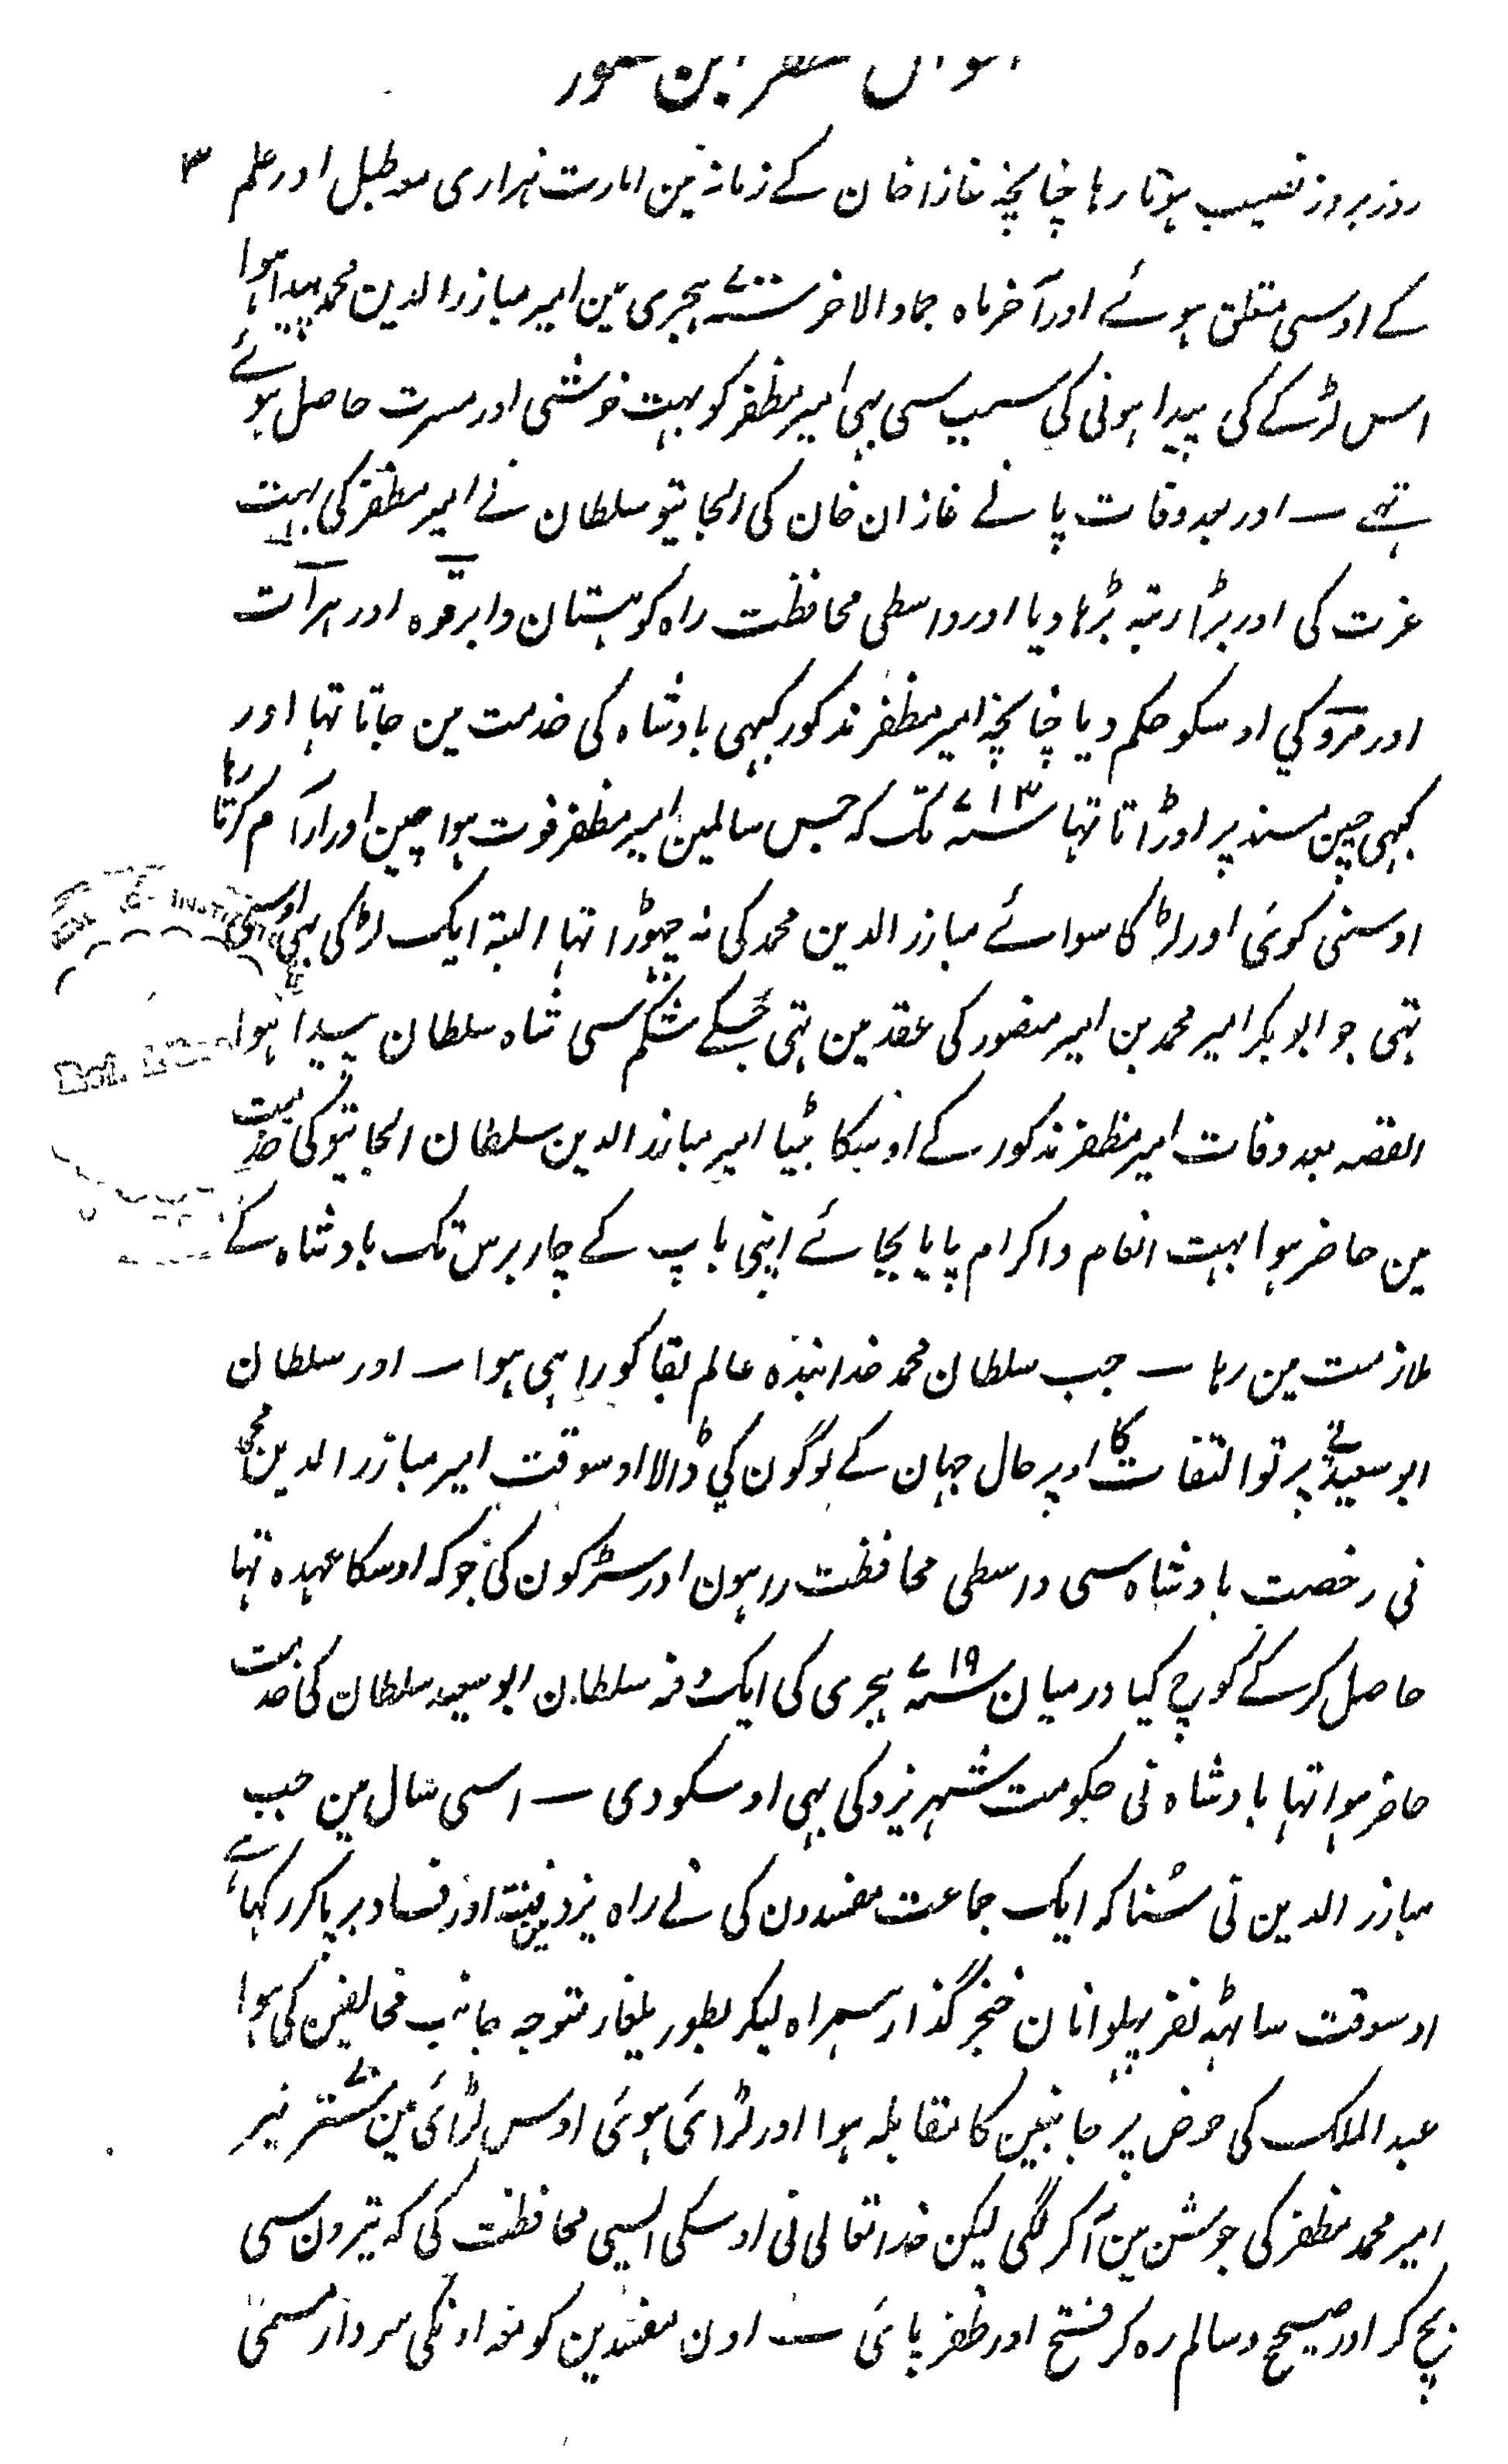 احوال مظفر ابن منصور
روز بروز نصیب ہوتا رہا چنانچہ غازا خان کے زمانہ مین امارت ہزاری معہ طبل اور علم ۳
کے اوسی متعلق ہوئے اور آخر ماہ جماد الاخر سنہ ۷۰۰ ہجری مین امیر مبارز الدین محمد پیدا ہوا
اس لڑکے کی پیدا ہونی کی سبب سی بہی امیر مظفر کو بہت خوشی اور مسرت حاصل ہوئے
تہے ــ اور بعد وفات پانے غازان خان کی الجایتو سلطان نے امیر مظفر کی بہت
عزت کی اور بڑا رتبہ بڑہا دیا اور واسطی محافظت راہ کوہستان و ابرقوہ اور ہرات
اور مرو کي اوسکو حکم دیا چنانچہ امیر مظفر مذکور کبہی بادشاہ کی خدمت مین جاتا تہا اور
کبہی چین مسند پر اوڑاتا تہا سنہ ۷۱۳ تک کہ جس سالمین امیر مظفر فوت ہوا چین اور آرام کرتا رہا
اوسنی کوئی اور لڑکا سوائے مبارز الدین محمد کی نہ چہوڑا تہا البتہ ایک لڑکی بہی اوسی
تہی جو ابو بکر امیر محمد بن امیر منصور کی عقد مین تہی جسکے شکم سی شاہ سلطان پیدا ہوا
القصہ بعد وفات امیر مظفر مذکور کے اوسکا بیٹا امیر مبارز الدین سلطان الجایتو کی خدمت
مین حاضر ہوا بہت انعام و اکرام پایا بجائے اپنی باپ کے چار برس تک بادشاہ کے
ملازمت مین رہا ــ جب سلطان محمد خدابندہ عالم بقا کو راہی ہوا ــ اور سلطان
ابو سعید نے پرتو التفات کا اوپر حال جہان کے لوگون کي ڈالا اوسوقت امیر مبارز الدین محمد
نی رخصت بادشاہ سی واسطی محافظت راہون اور سڑکون کی جو کہ اوسکا عہدہ تہا
حاصل کر کے کوچ کیا درمیان سنہ ۷۱۹ ہجری کی ایک دفعہ سلطان ابو سعید سلطان کی خدمت
حاضر ہوا تہا بادشاہ نی حکومت شہر یزد کی بہی اوسکو دی ــ اسی سال مین جب
مبارز الدین نی سُنا کہ ایک جماعت مفسدون کی نے راہ یزد مین فتنہ اور فساد برپا کر رکہا ہے
اوسوقت ساٹہہ نفر پہلوانان خنجر گذار ہمراہ لیکر بطور یلغار متوجہ جانب مخالفین کی ہوا
عبد الملک کی حوض پر جانبین کا مقابلہ ہوا اور لڑائی ہوئی اوس لڑائی مین ستر تیر
امیر محمد مظفر کی جوشن مین آکر لگی لیکن خدا تعالی نی اوسکی ایسی محافظت کی کہ تیرون سی
بچ کر اور صحیح و سالم رہ کر فتح اور ظفر پائی ــ اون مفسدین کو معہ اونکی سردار مسمی